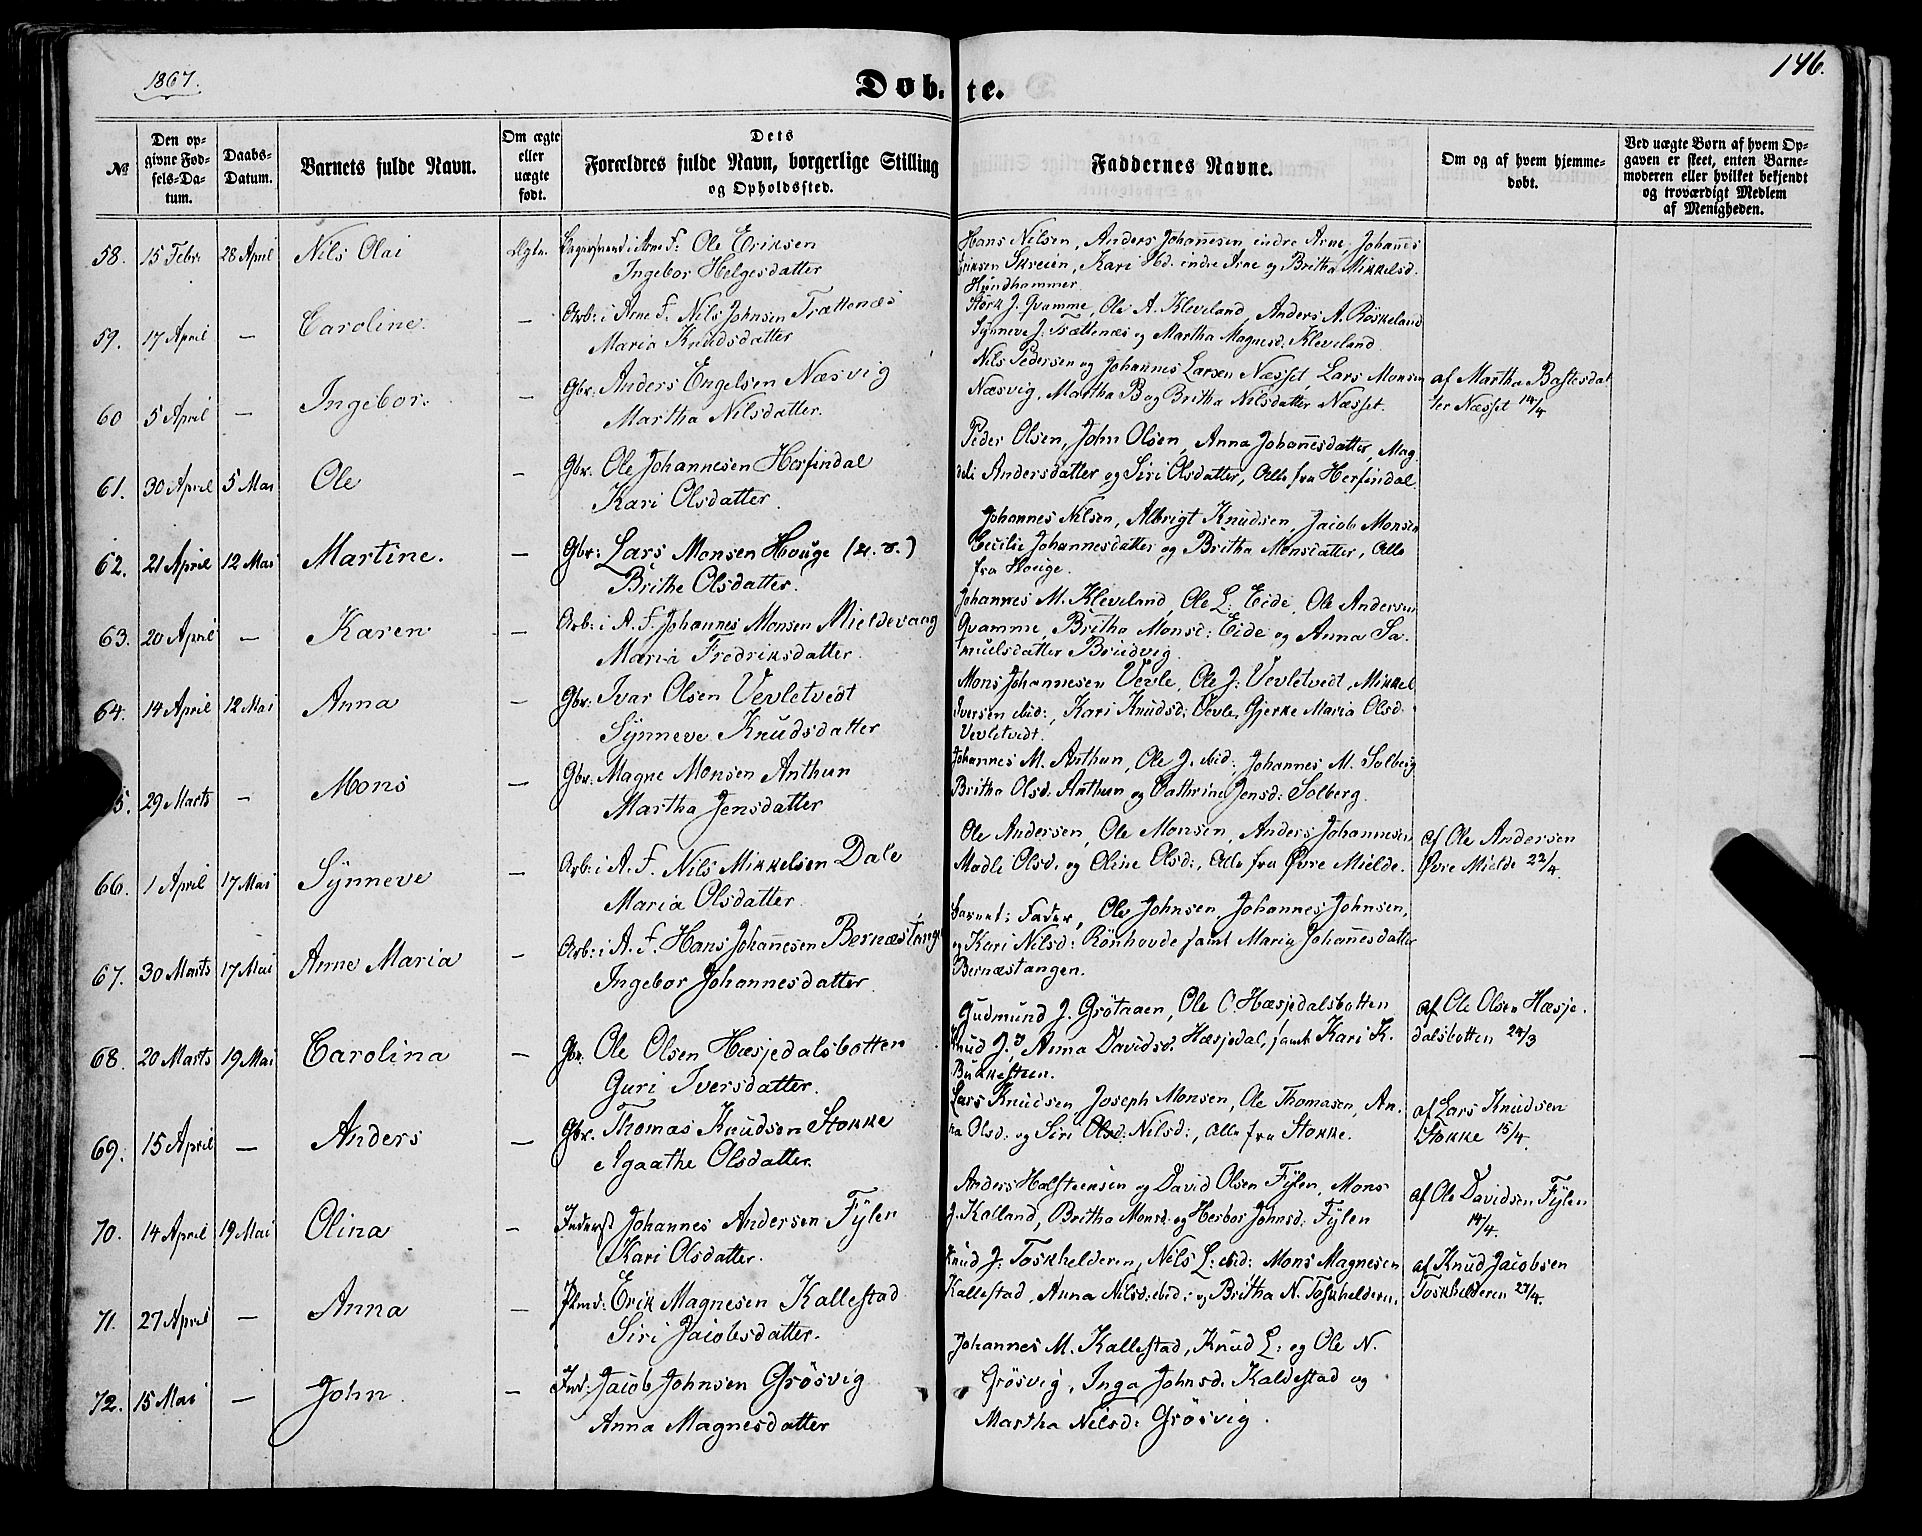 1867.
Døb. te.
146.
№
Den op-
givne Fød-
sels-Da-
tum.
Daabs-
Datum.
Barnets fulde Navn.
Om ægte
eller
uægte
født.
Dets
Forældres fulde Navn, borgerlige Stilling
og Opholdssted.
Faddernes Navne.
Om og af hvem hjemme-
døbt.
Ved uægte Børn af hvem Op-
gaven er skeet, enten Barne-
moderen eller hvilket bekjendt
og troværdigt Medlem
af Menigheden.
58. 15 Febr. 28 April Nils Olai i Arne F: Ole Eriksen
Ingebor Helgesdatter
Hans Nilsen, Anders Johannesen indre Arne, Johannes
Eriksen Skreien, Kari ibd. indre Arne og Britha Mikkelsd.
Hundhammer
59. 17 April — Caroline. — Arb: i Arne F. Nils Johnsen Trættenæs
Maria Knudsdatter
Størk J. Qvamme, Ole A. Kleveland, Anders A. Røskeland
Synneve J. Trættenæs og Martha Magnesd. Kleveland.
60 5 April — Ingebor. — Gbr. Anders Engelsen Næsvig
Martha Nilsdatter.
Nils Pedersen og Johannes Larsen Næsset, Lars Monsen
Næsvig, Martha B og Britha Nilsdatter Næsset.
af Martha Bastesdat
ter Næsset 14/4
61. 30 April 5 Mai Ole — Gbr. Ole Johannesen Herfindal
Kari Olsdatter.
Peder Olsen, John Olsen, Anna Johannesdatter, Mag
deli Andersdatter og Siri Olsdatter, Alle fra Herfindal.
62. 21 April 12 Mai Martine. — Gbr: Lars Monsen Houge
Brithe Olsdatter.
Johannes Nilsen, Albrigt Knudsen, Jacob Monsen
Cecilie Johannesdatter og Britha Monsdatter, Alle
fra Houge.
63. 20 April — Karen — Arb: i A. F. Johannes Monsen Mieldevang
Maria Fredriksdatter.
Johannes M. Kleveland, Ole L. Eide, Ole Andersen
Qvamme, Britha Monsd: Eide og Anna Sa-
muelsdatter Brudvig.
64. 14 April 12 Mai Anna — Gbr: Ivar Olsen Vevletvedt
Synneve Knudsdatter
Mons Johannesen Vevle, Ole J: Vevletvedt, Mikkel
Iversen ibid:, Kari Knudsd: Vevle, Gjerke Maria Olsd.
Vevletvedt.
5. 29 Marts — Mons — Gbr: Magne Monsen Anthun
Martha Jensdatter
Johannes M. Anthun, Ole J. ibid:, Johannes M. Solberg
Britha Olsd: Anthun og Cathrine Jensd: Solberg.
66. 1 April 17 Mai Synneve — Arb: i A. F. Nils Mikkelsen Dale
Maria Olsdatter
Ole Andersen, Ole Monsen, Anders Johannesen
Madle Olsd. og Oline Olsd:, Alle fra Øvre Mielde.
af Ole Andersen
Øvre Mielde 22/4.
67. 30 Marts 17 Mai Anne Maria — Arb: i A. F. Hans Johannesen Bernæstangen
Ingebor Johannesdatter
Barnet: Fader, Ole Johnsen, Johannes Johnsen,
og Kari Nilsd: Rønhovde samt Maria Johannesdatter
Bernæstangen.
68. 20 Marts 19 Mai Carolina — Gbr. Ole Olsen Hæsjedalsbotten
Guri Iversdatter.
Gudmund J. Grøtnaen, Ole O. Hæsjedalsbotten
Knud J., Anna Davidsd. Hæsjedal, samt Kari K.
Bukkesteen.
af Ole Olsen Hæsje-
dalsbotten 24/3
69. 15 April — Anders — Gbr. Thomas Knudsen Stokke
Agaathe Olsdatter.
Lars Knudsen Joseph Monsen, Ole Thomasen, An-
na Olsd: og Siri Olsd: Nilsd:, alle fra Stokke.
af Lars Knudsen
Stokke 15/4.
70. 14 April 19 Mai Olina — Inderst Johannes Andersen Fylen
Kari Olsdatter.
Anders Halsteensen og David Olsen Fylen, Mons
J. Kalland, Britha Monsd: og Hesbor Johnsd: Fylen
af Ole Davidsen Fylen
14/4.
71. 27 April — Anna — Plmd: Erik Magnesen Kallestad
Siri Jacobsdatter.
Knud J. Toskhelderen, Nils L: ibid: Mons Magnesen
Kallestad, Anna Nilsd: ibid: og Britha N. Toskhelderen.
af Knud Jacobsen
Toskhelderen 27/4.
72. 15 Mai — John. — Ind: Jacob Johnsen Grøsvig
Anna Magnesdatter
Johannes M. Kallestad, Knud L: og Ole N.
Grøsvig, Inga Johnsd. Kaldestad og
Martha Nilsd: Grøsvig.